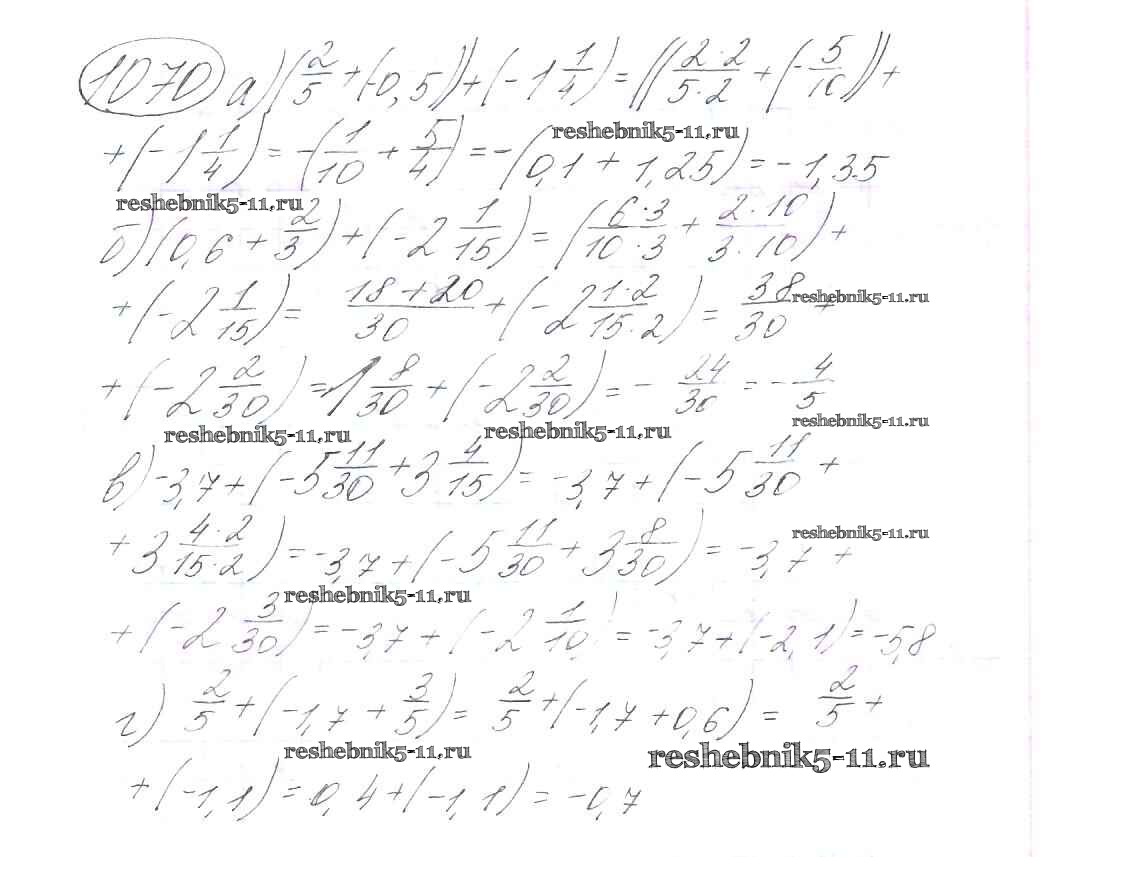 1070 а) (2/5 + (-0,5)) + (-1 1/4) = ((2·2)/(5·2) + (-5/10)) +
reshebnik5-11.ru
+ (-1 1/4) = -(1/10 + 5/4) = -(0,1 + 1,25) = -1,35
reshebnik5-11.ru
б) (0,6 + 2/3) + (-2 1/15) = ((6·3)/(10·3) + (2·10)/(3·10)) +
+ (-2 1/15) = (18+20)/30 + (-2 (1·2)/(15·2)) = 38/30 +
reshebnik5-11.ru
+ (-2 2/30) = 1 8/30 + (-2 2/30) = - 24/30 = - 4/5
reshebnik5-11.ru
reshebnik5-11.ru reshebnik5-11.ru
в) -3,7 + (-5 11/30 + 3 4/15) = -3,7 + (-5 11/30 +
+ 3 (4·2)/(15·2)) = -3,7 + (-5 11/30 + 3 8/30) = -3,7 +
reshebnik5-11.ru
reshebnik5-11.ru
+ (-2 3/30) = -3,7 + (-2 1/10) = -3,7 + (-2,1) = -5,8
г) 2/5 + (-1,7 + 3/5) = 2/5 + (-1,7 + 0,6) = 2/5 +
reshebnik5-11.ru reshebnik5-11.ru
+ (-1,1) = 0,4 + (-1,1) = -0,7